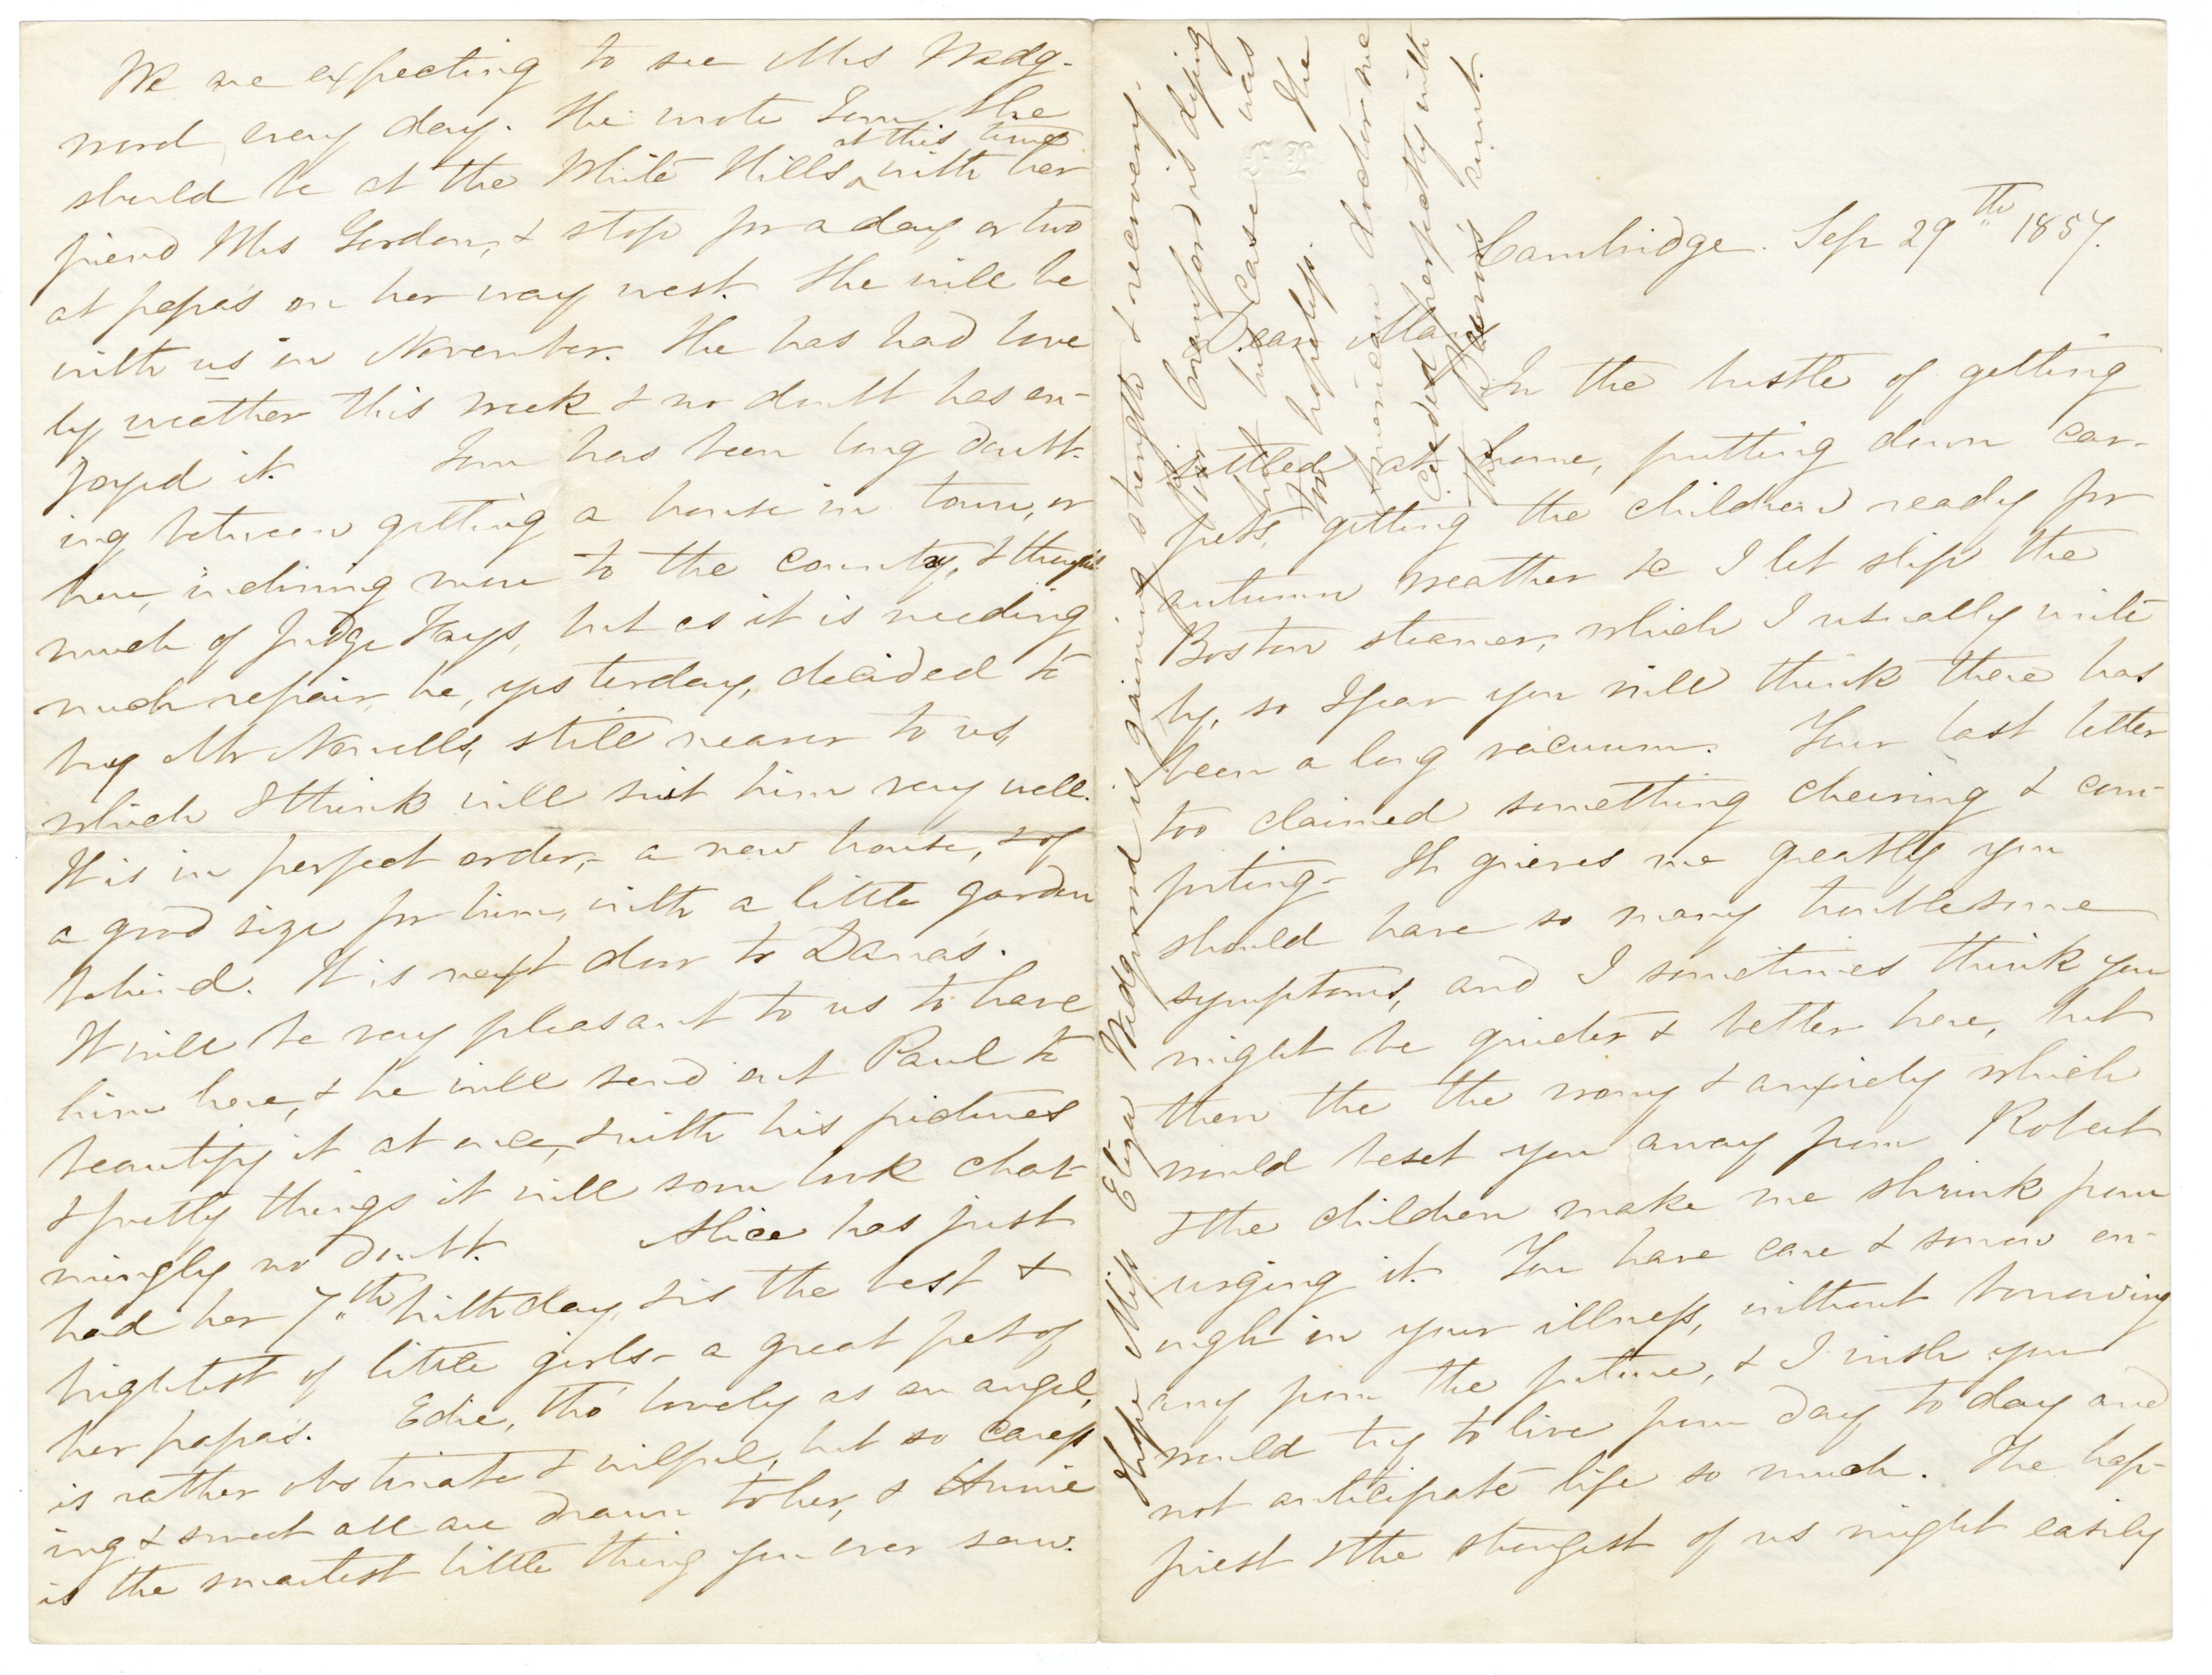 Cambridge. Sep 29th 1857.
Dear Mary
In the bustle of getting
settled at home, putting down car-
pets, getting the children ready for
autumn weather &c I let slip the
Boston steamer, which I usually write
by, so I fear you will think there has
been a long vacuum. Your last letter
too claimed something cheering & com-
forting - It grieves me greatly you
should have so many troublesome
symptoms, and I sometimes think you
might be quieter & better here, but
then the the worry & anxiety which
would beset you away from Robert
& the children make me shrink from
urging it. You have care & sorrow en-
ough in your illness, without borrowing
any from the future, & I wish you
would try to live from day to day and
not anticipate life so much. The hap-
piest & the strongest of us might easily
We are expecting to see Mrs Wedg-
wood every day. She wrote Tom she
should be at the White Hills at this time with her
friend Mrs Gordon, & stop for a day or two
at papa's on her way west. She will be
with us in November. She has had love
ly weather this week & no doubt has en-
joyed it. Tom has been long doubt-
ing between getting a house in town, or
here, inclining more to the country, & thought
much of Judge Fays, but as it is needing
much repair he, yesterday, decided to
buy Mr Norvells, still nearer to us,
which I think will suit him very well.
It is in perfect order, - a new house, & of
a good size for him, with a little garden
behind. It is next door to Danas.
It will be very pleasant to us to have
him here, & he will send out Paul to
beautify it at once, & with his pictures
& pretty things it will soon look char
mingly no doubt. Alice has just
had her 7th birthday, & is the best &
brightest of little girls - a great pet of
her papa's. Edie, tho' lovely as an angel,
is rather obstinate & wilful, but so caress
ing & sweet all are drawn to her, & Annie
is the smartest little thing you ever saw.
I hope Miss Eliza Wedgwood is gaining strength & recovery -
Crawford is dying
his case was
hopeless. The
American doctor me
ceded perfectly with